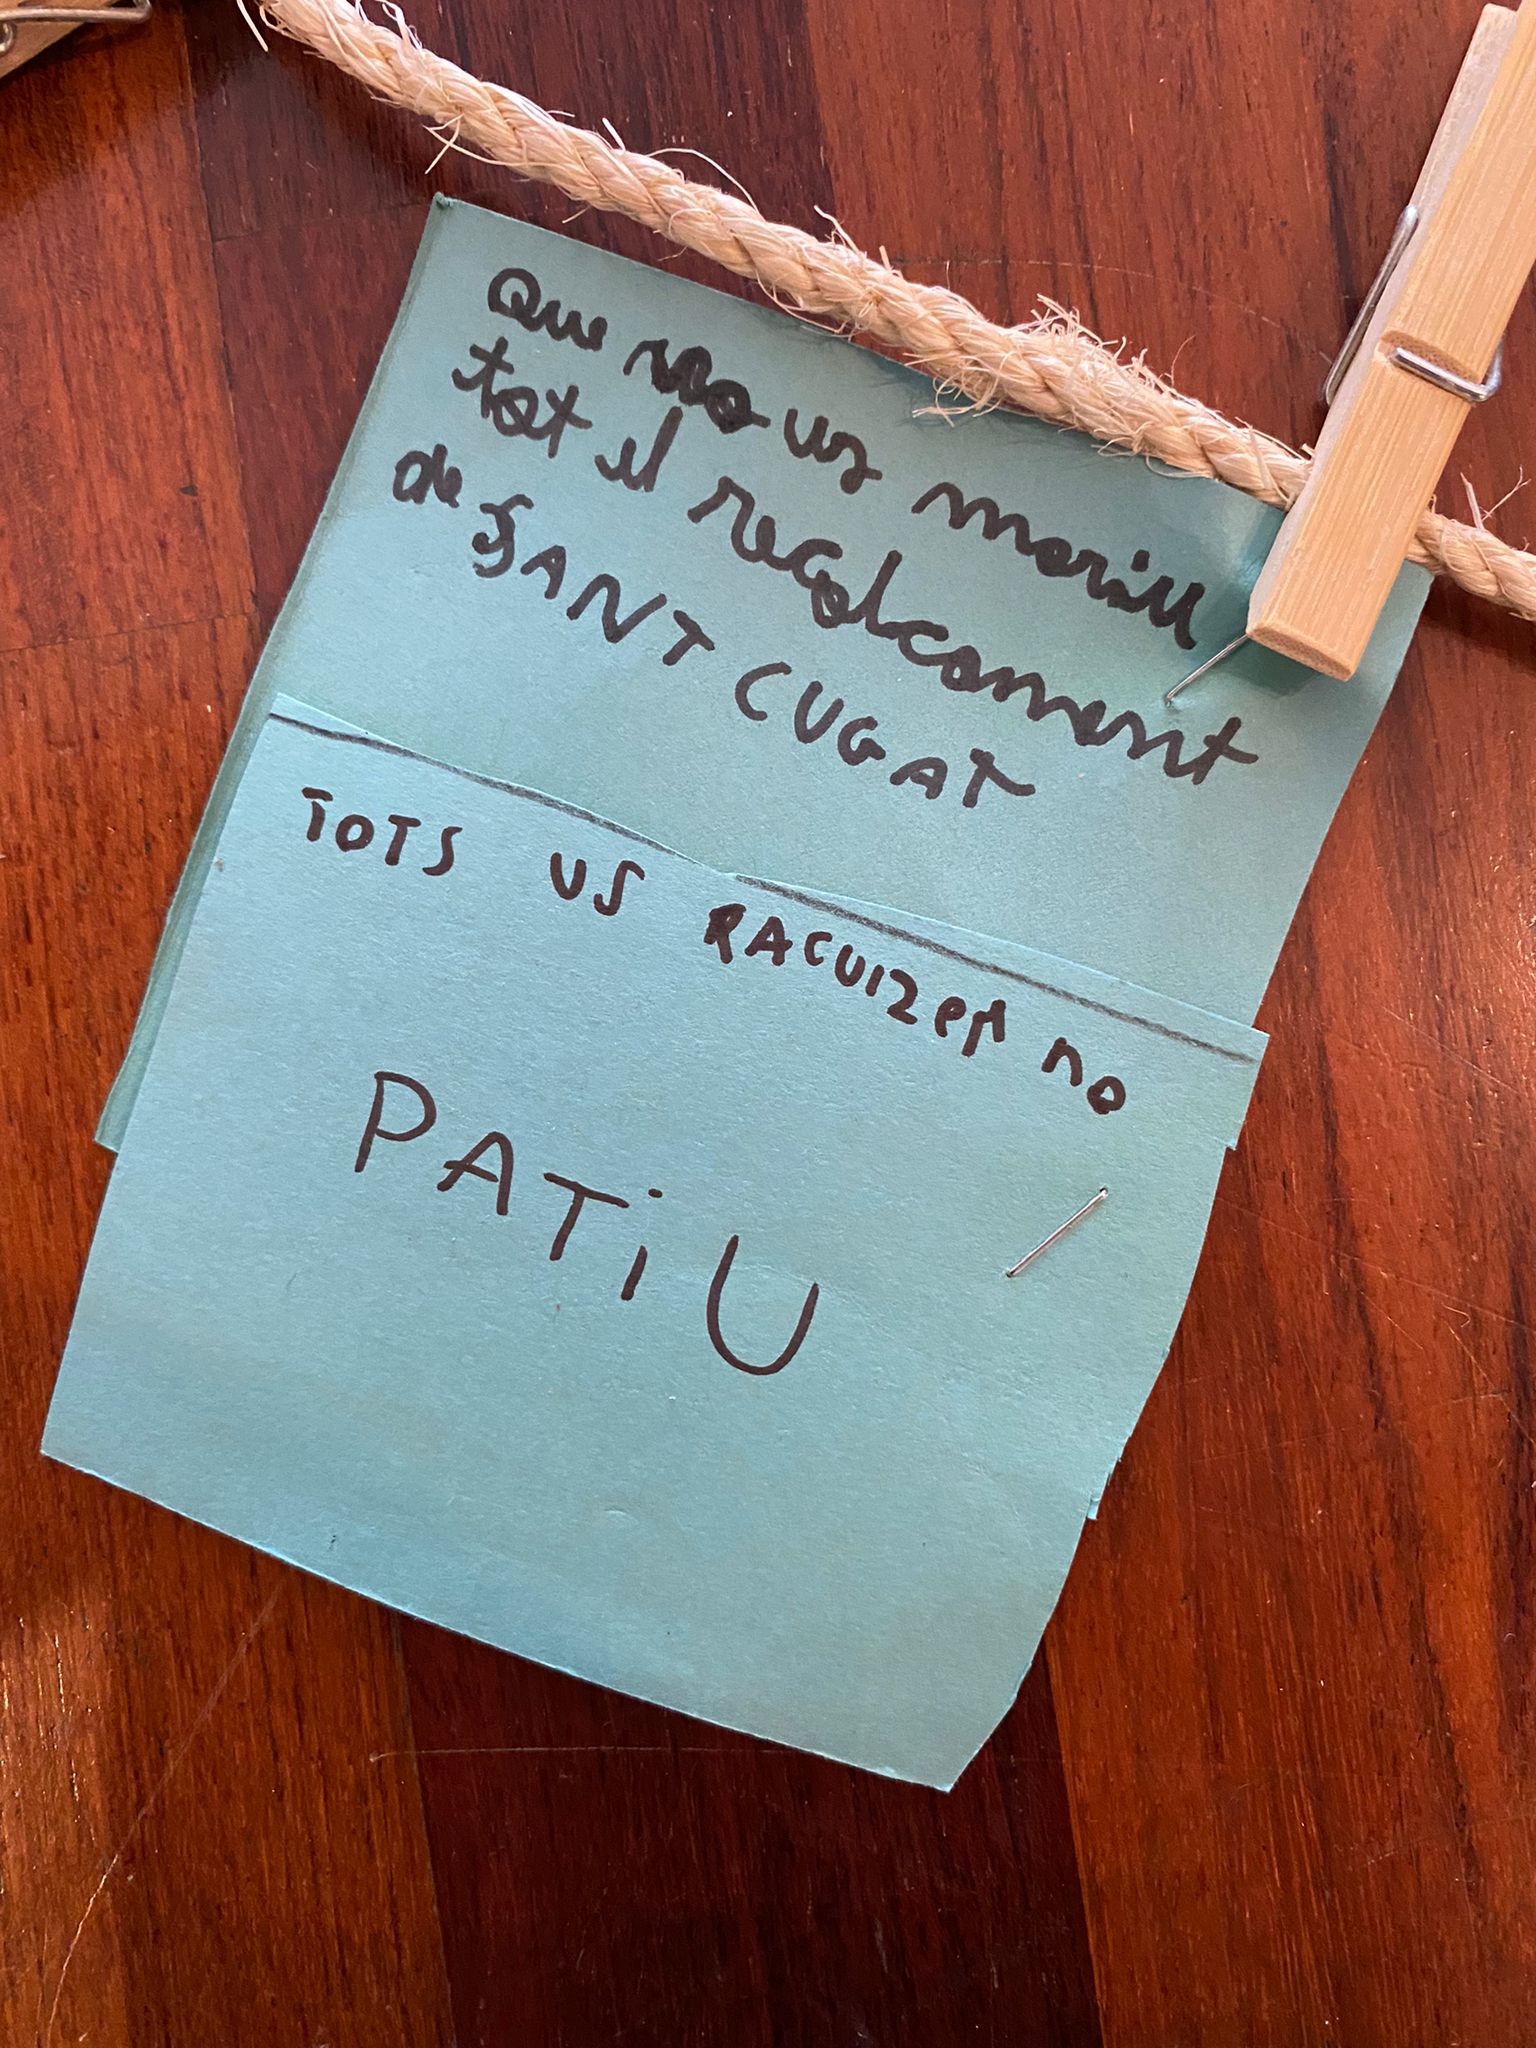 Que no us moriu
tot el recolcament
de SANT CUGAT
TOTS US RACUIZEM no
PATiU